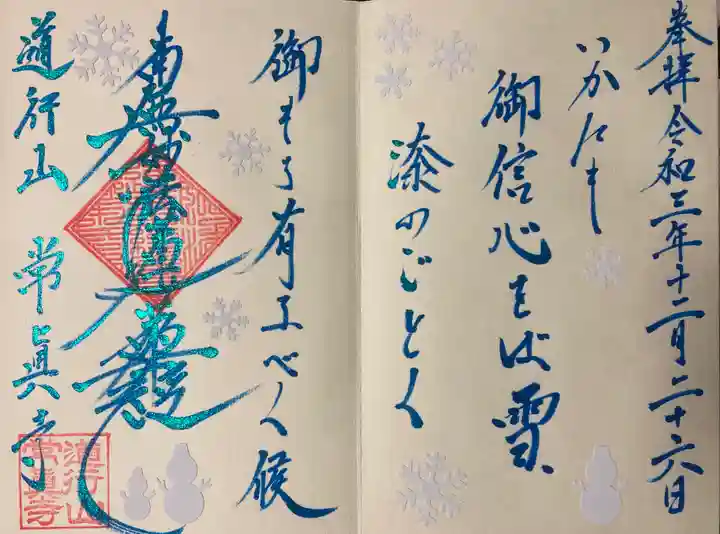 奉拝 令和三年十二月二十六日
いかにも
御信心をば雪
漆のごとく
御もち有るべく候
南無妙法蓮華経
道行山 常眞寺
道行山
常眞寺